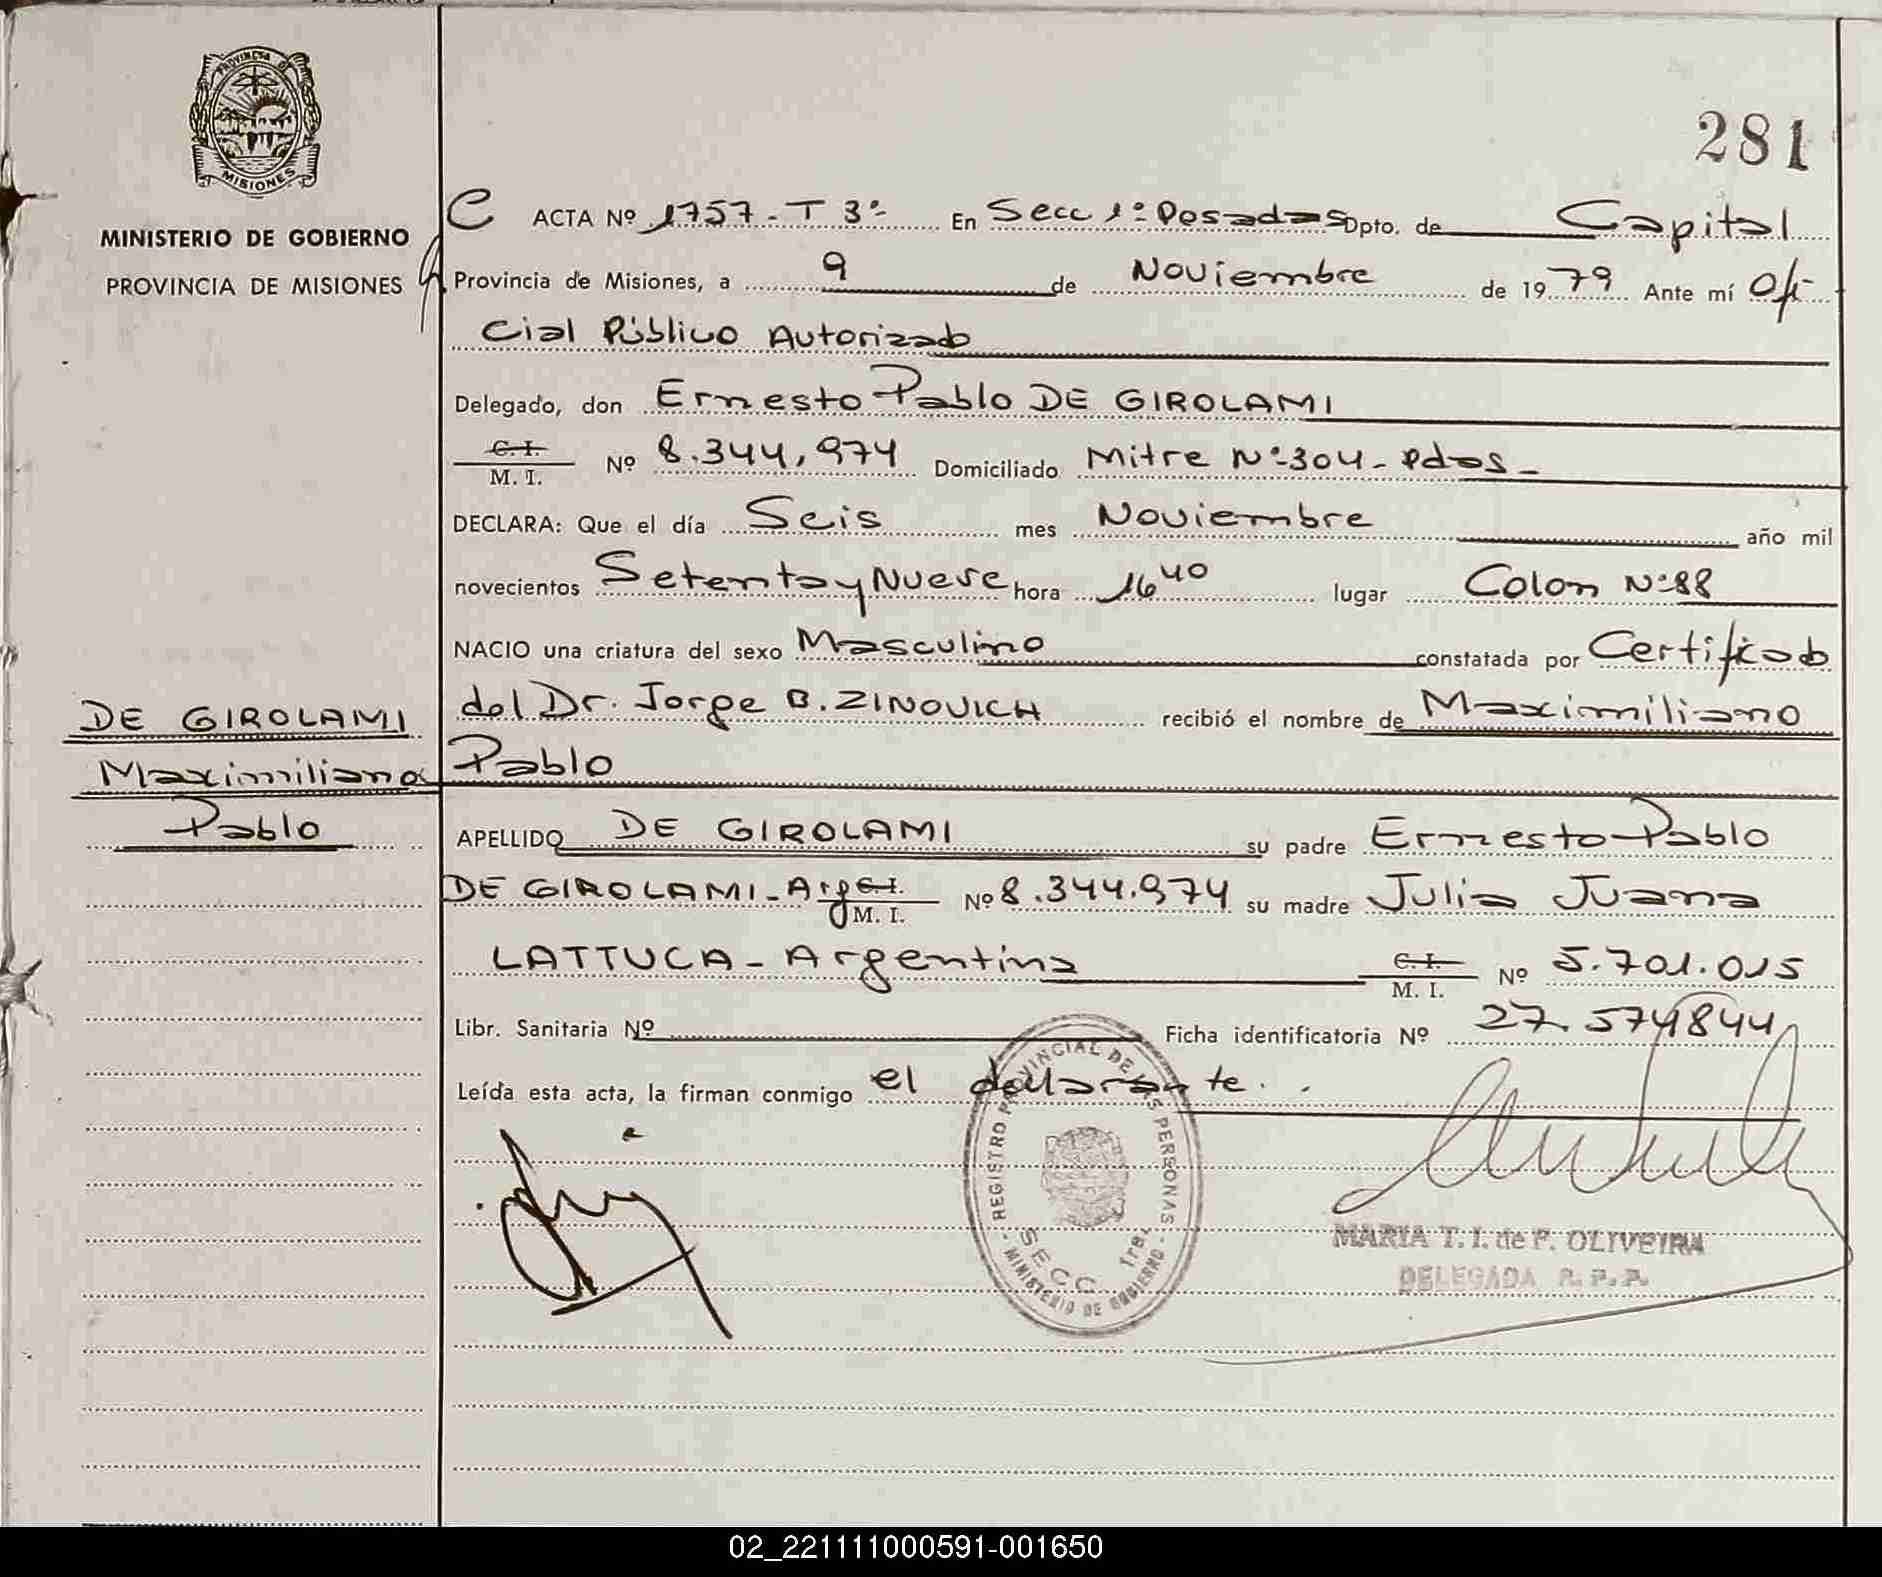 PROVINCIA DE
MISIONES
MINISTERIO DE GOBIERNO
PROVINCIA DE MISIONES
DE GIROLAMI
Maximiliano
Pablo
281
C ACTA Nº 1757-T 3º En Secc 1º Posadas Dpto. de Capital
Provincia de Misiones, a 9 de Noviembre de 1979 Ante mí Ofi-
cial Público Autorizado
Delegado, don Ernesto Pablo DE GIROLAMI
C.I.
M. I. Nº 8.344,974 Domiciliado Mitre Nº 304 - Pdas -
DECLARA: Que el día Seis mes Noviembre año mil
novecientos Setenta y Nueve hora 16 40 lugar Colon Nº 88
NACIO una criatura del sexo Masculino constatada por Certificado
del Dr. Jorge B. ZINOVICH recibió el nombre de Maximiliano
Pablo
APELLIDO DE GIROLAMI su padre Ernesto Pablo
DE GIROLAMI - Arg C.I. M. I. Nº 8.344.974 su madre Julia Juana
LATTUCA - Argentina C.I. M. I. Nº 5.701.015
Libr. Sanitaria Nº Ficha identificatoria Nº 27.574844
Leída esta acta, la firman conmigo el declarante.
REGISTRO PROVINCIAL DE LAS PERSONAS
SECC. 1ra.
- MINISTERIO DE GOBIERNO -
MARIA T. I. de F. OLIVEIRA
DELEGADA R. P. P.
02_221111000591-001650